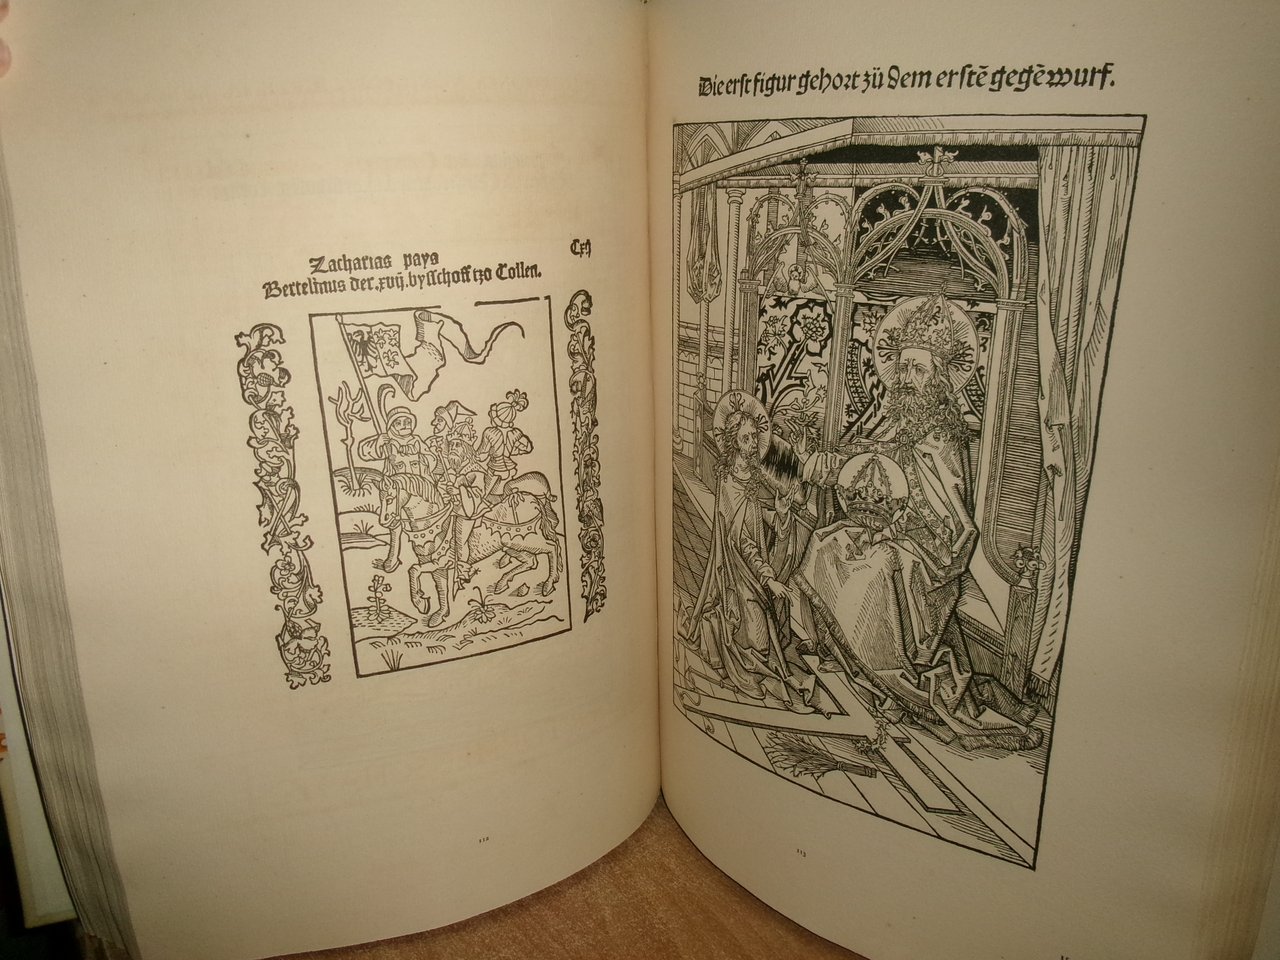 Cxij
Zacharias pays
Bertelinus der .xvij. bysschoff tzo Collen.
112
Die erst figur gehort zü dem erstē gegēwurf.
113